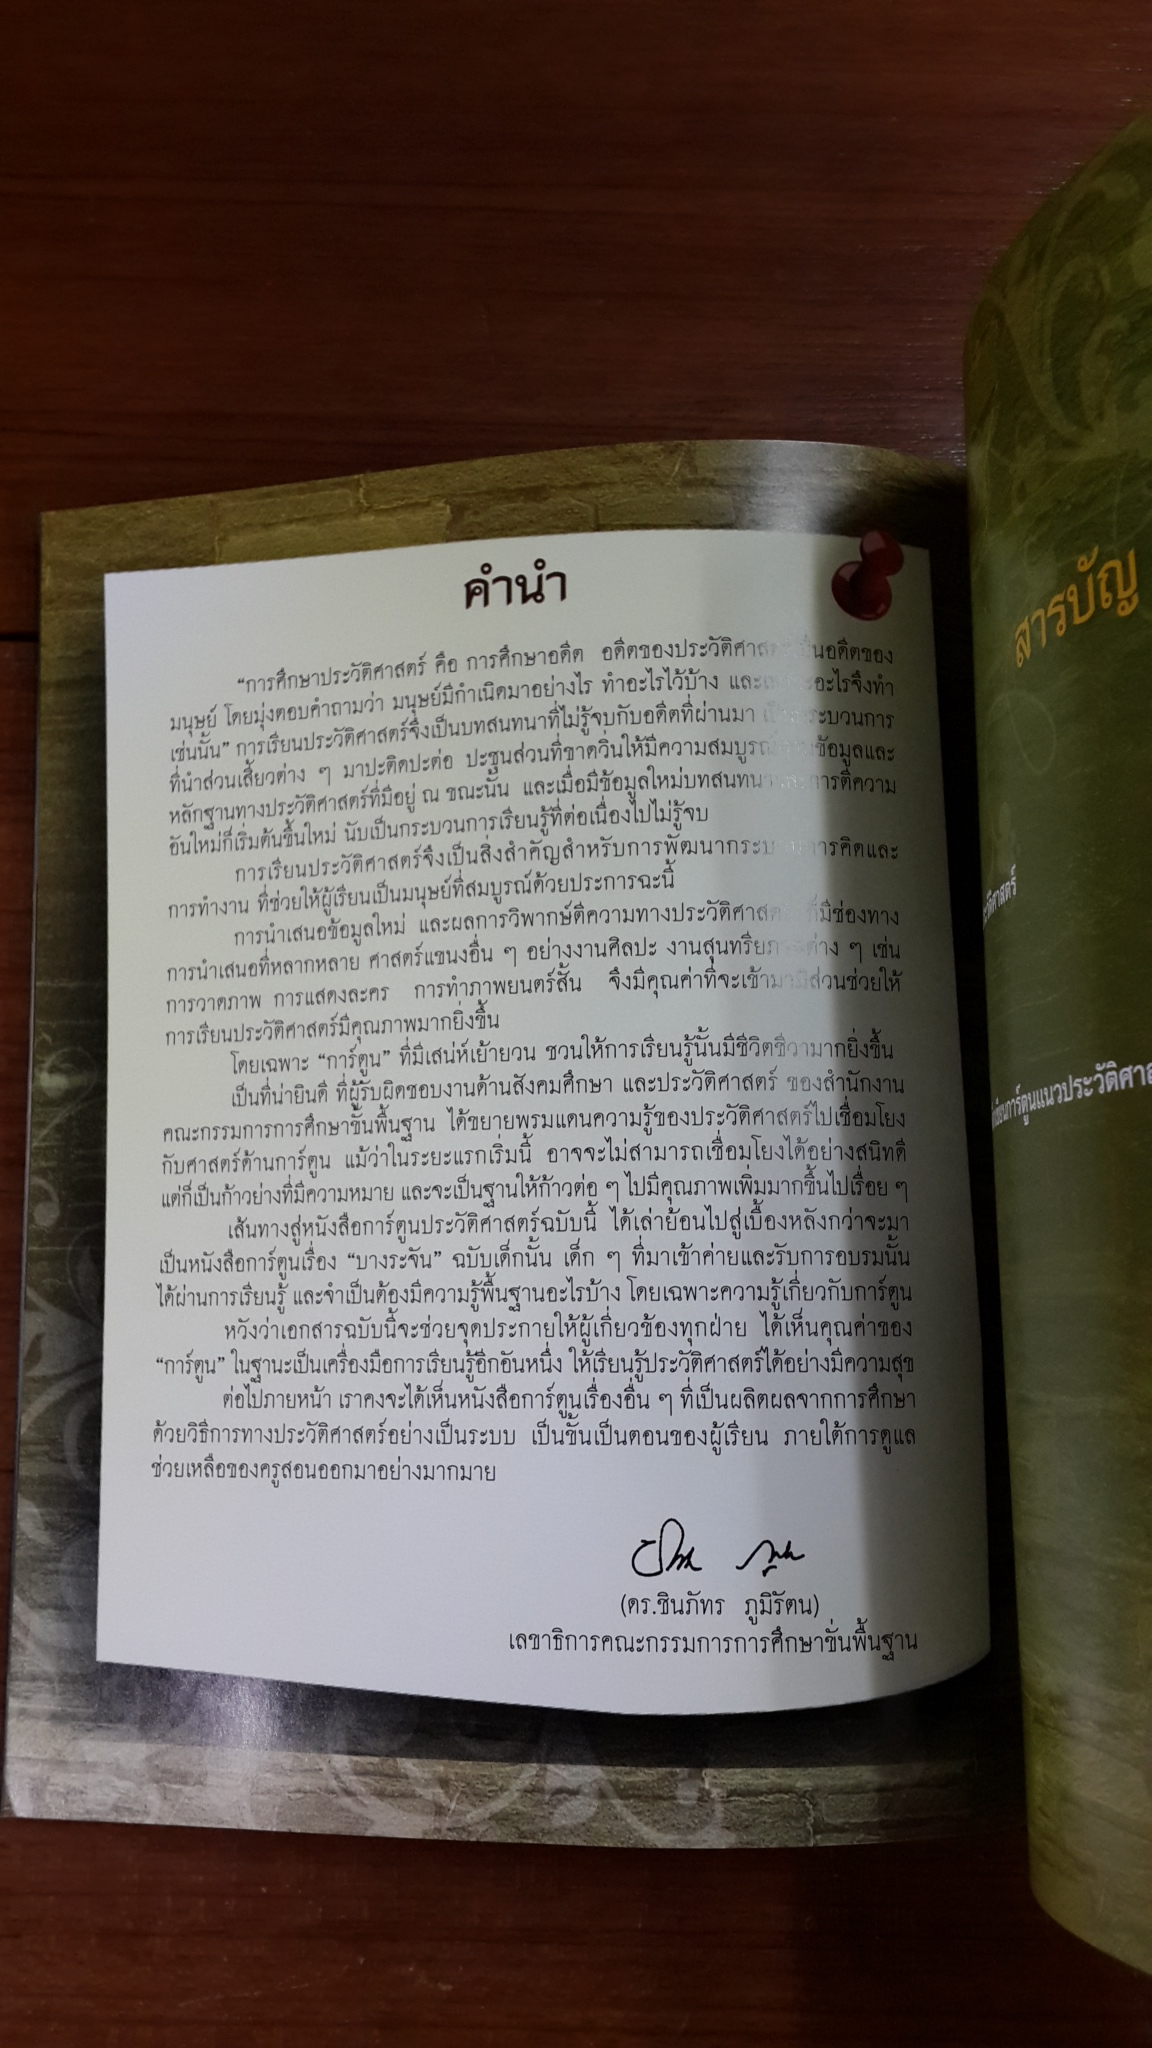 คำนำ
“การศึกษาประวัติศาสตร์ คือ การศึกษาอดีต อดีตของประวัติศาสตร์เป็นอดีตของ
มนุษย์ โดยมุ่งตอบคำถามว่า มนุษย์มีกำเนิดมาอย่างไร ทำอะไรไว้บ้าง และเพราะอะไรจึงทำ
เช่นนั้น” การเรียนประวัติศาสตร์จึงเป็นบทสนทนาที่ไม่รู้จบกับอดีตที่ผ่านมา เป็นกระบวนการ
ที่นำส่วนเสี้ยวต่าง ๆ มาปะติดปะต่อ ปะชุนส่วนที่ขาดวิ่นให้มีความสมบูรณ์ ข้อมูลและ
หลักฐานทางประวัติศาสตร์ที่มีอยู่ ณ ขณะนั้น และเมื่อมีข้อมูลใหม่บทสนทนาและการตีความ
อันใหม่ก็เริ่มต้นขึ้นใหม่ นับเป็นกระบวนการเรียนรู้ที่ต่อเนื่องไปไม่รู้จบ
การเรียนประวัติศาสตร์จึงเป็นสิ่งสำคัญสำหรับการพัฒนากระบวนการคิดและ
การทำงาน ที่ช่วยให้ผู้เรียนเป็นมนุษย์ที่สมบูรณ์ด้วยประการฉะนี้
การนำเสนอข้อมูลใหม่ และผลการวิพากษ์ตีความทางประวัติศาสตร์ ที่มีช่องทาง
การนำเสนอที่หลากหลาย ศาสตร์แขนงอื่น ๆ อย่างงานศิลปะ งานสุนทรียภาพต่าง ๆ เช่น
การวาดภาพ การแสดงละคร การทำภาพยนตร์สั้น จึงมีคุณค่าที่จะเข้ามามีส่วนช่วยให้
การเรียนประวัติศาสตร์มีคุณภาพมากยิ่งขึ้น
โดยเฉพาะ “การ์ตูน” ที่มีเสน่ห์เย้ายวน ชวนให้การเรียนรู้นั้นมีชีวิตชีวามากยิ่งขึ้น
เป็นที่น่ายินดี ที่ผู้รับผิดชอบงานด้านสังคมศึกษา และประวัติศาสตร์ ของสำนักงาน
คณะกรรมการการศึกษาขั้นพื้นฐาน ได้ขยายพรมแดนความรู้ของประวัติศาสตร์ไปเชื่อมโยง
กับศาสตร์ด้านการ์ตูน แม้ว่าในระยะแรกเริ่มนี้ อาจจะไม่สามารถเชื่อมโยงได้อย่างสนิทดี
แต่ก็เป็นก้าวย่างที่มีความหมาย และจะเป็นฐานให้ก้าวต่อ ๆ ไปมีคุณภาพเพิ่มมากขึ้นไปเรื่อย ๆ
เส้นทางสู่หนังสือการ์ตูนประวัติศาสตร์ฉบับนี้ ได้เล่าย้อนไปสู่เบื้องหลังกว่าจะมา
เป็นหนังสือการ์ตูนเรื่อง “บางระจัน” ฉบับเด็กนั้น เด็ก ๆ ที่มาเข้าค่ายและรับการอบรมนั้น
ได้ผ่านการเรียนรู้ และจำเป็นต้องมีความรู้พื้นฐานอะไรบ้าง โดยเฉพาะความรู้เกี่ยวกับการ์ตูน
หวังว่าเอกสารฉบับนี้จะช่วยจุดประกายให้ผู้เกี่ยวข้องทุกฝ่าย ได้เห็นคุณค่าของ
“การ์ตูน” ในฐานะเป็นเครื่องมือการเรียนรู้อีกอันหนึ่ง ให้เรียนรู้ประวัติศาสตร์ได้อย่างมีความสุข
ต่อไปภายหน้า เราคงจะได้เห็นหนังสือการ์ตูนเรื่องอื่น ๆ ที่เป็นผลิตผลจากการศึกษา
ด้วยวิธีการทางประวัติศาสตร์อย่างเป็นระบบ เป็นขั้นเป็นตอนของผู้เรียน ภายใต้การดูแล
ช่วยเหลือของครูสอนออกมาอย่างมากมาย
(ดร.ชินภัทร ภูมิรัตน)
เลขาธิการคณะกรรมการการศึกษาขั้นพื้นฐาน
สารบัญ